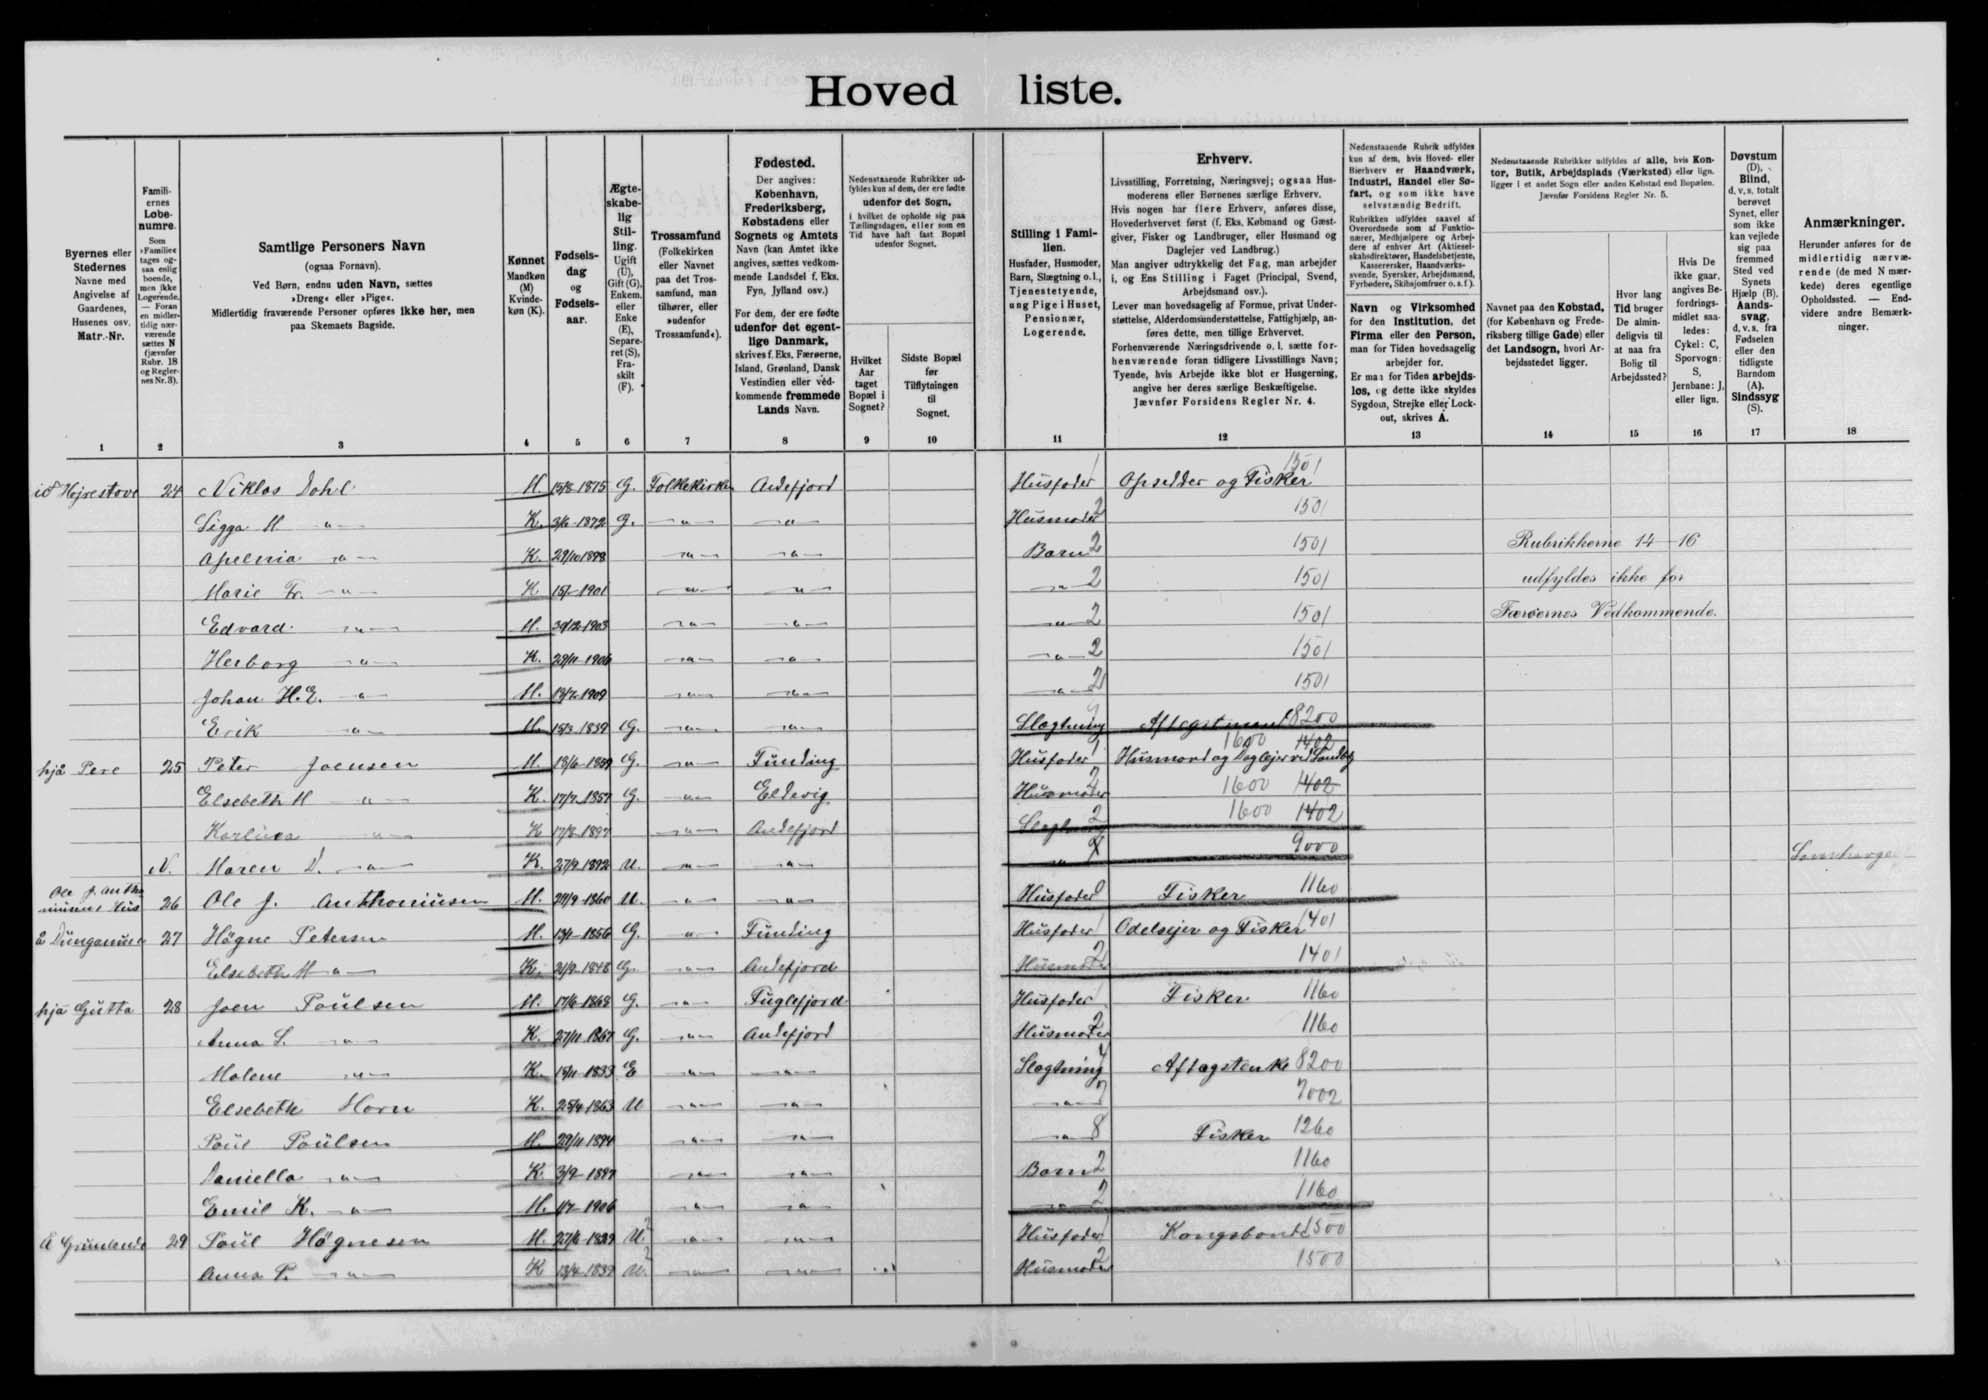 Hoved liste.
Byernes eller
Stedernes
Navne med
Angivelse af
Gaardenes,
Husenes osv.
Matr.-Nr.
1
Famili-
ernes
Løbe-
numre.
Som
»Familie«
tages og-
saa enlig
boende,
men ikke
Logerende.
— Foran
en midler-
tidig nær-
værende
sættes N
(jævnfør
Rubr. 18
og Regler-
nes Nr. 3).
2
Samtlige Personers Navn
(ogsaa Fornavn).
Ved Børn, endnu uden Navn, sættes
»Dreng« eller »Pige«.
Midlertidig fraværende Personer opføres ikke her, men
paa Skemaets Bagside.
3
Kønnet
Mandkøn
(M)
Kvinde-
køn (K).
4
Fødsels-
dag
og
Fødsels-
aar.
5
Ægte-
skabe-
lig
Stil-
ling.
Ugift
(U),
Gift (G),
Enkem.
eller
Enke
(E),
Separe-
ret (S),
Fra-
skilt
(F).
6
Trossamfund
(Folkekirken
eller Navnet
paa det Tros-
samfund, man
tilhører, eller
»udenfor
Trossamfund«).
7
Fødested.
Der angives:
København,
Frederiksberg,
Købstadens eller
Sognets og Amtets
Navn (kan Amtet ikke
angives, sættes vedkom-
mende Landsdel f. Eks.
Fyn, Jylland osv.)
For dem, der ere fødte
udenfor det egent-
lige Danmark,
skrives f. Eks. Færøerne,
Island, Grønland, Dansk
Vestindien eller ved-
kommende fremmede
Lands Navn.
8
Nedenstaaende Rubrikker ud-
fyldes kun af dem, der ere fødte
udenfor det Sogn,
i hvilket de opholde sig paa
Tællingsdagen, eller som en
Tid have haft fast Bopæl
udenfor Sognet.
Hvilket
Aar
taget
Bopæl i
Sognet?
9
Sidste Bopæl
før
Tilflytningen
til
Sognet.
10
Stilling i Fami-
lien.
Husfader, Husmoder,
Barn, Slægtning o. l.,
Tjenestetyende,
ung Pige i Huset,
Pensionær,
Logerende.
11
Erhverv.
Livsstilling, Forretning, Næringsvej; ogsaa Hus-
moderens eller Børnenes særlige Erhverv.
Hvis nogen har flere Erhverv, anføres disse,
Hovederhvervet først (f. Eks. Købmand og Gæst-
giver, Fisker og Landbruger, eller Husmand og
Daglejer ved Landbrug.)
Man angiver udtrykkelig det Fag, man arbejder
i, og Ens Stilling i Faget (Principal, Svend,
Arbejdsmand osv.).
Lever man hovedsagelig af Formue, privat Under-
støttelse, Alderdomsunderstøttelse, Fattighjælp, an-
føres dette, men tillige Erhvervet.
Forhenværende Næringsdrivende o. l. sætte for-
henværende foran tidligere Livsstillings Navn;
Tyende, hvis Arbejde ikke blot er Husgerning,
angive her deres særlige Beskæftigelse.
Jævnfør Forsidens Regler Nr. 4.
12
Nedenstaaende Rubrik udfyldes
kun af dem, hvis Hoved- eller
Bierhverv er Haandværk,
Industri, Handel eller Sø-
fart, og som ikke have
selvstændig Bedrift.
Rubrikken udfyldes saavel af
Overordnede som af Funktio-
nærer, Medhjælpere og Arbej-
dere af enhver Art (Aktiesel-
skabsdirektører, Handelsbetjente,
Kassererske, Haandværks-
svende, Syersker, Arbejdsmænd,
Fyrbødere, Skibsjomfruer o. s. f.).
Navn og Virksomhed
for den Institution, det
Firma eller den Person,
man for Tiden hovedsagelig
arbejder for.
Er man for Tiden arbejds-
løs, og dette ikke skyldes
Sygdom, Strejke eller Lock-
out, skrives A.
13
Nedenstaaende Rubrikker udfyldes af alle, hvis Kon-
tor, Butik, Arbejdsplads (Værksted) eller lign.
ligger i et andet Sogn eller anden Købstad end Bopælen.
Jævnfør Forsidens Regler Nr. 5.
Navnet paa den Købstad,
(for København og Frede-
riksberg tillige Gade) eller
det Landsogn, hvori Ar-
bejdsstedet ligger.
14
Hvor lang
Tid bruger
De almin-
deligvis til
at naa fra
Bolig til
Arbejdssted?
15
Hvis De
ikke gaar,
angives Be-
fordrings-
midlet saa-
ledes:
Cykel: C,
Sporvogn:
S,
Jernbane: J,
eller lign.
16
Døvstum
(D),
Blind,
d. v. s. totalt
berøvet
Synet, eller
som ikke
kan vejlede
sig paa
fremmed
Sted ved
Synets
Hjælp (B).
Aands-
svag,
d. v. s. fra
Fødselen
eller den
tidligste
Barndom
(A).
Sindssyg
(S).
17
Anmærkninger.
Herunder anføres for de
midlertidig nærvæ-
rende (de med N mær-
kede) deres egentlige
Opholdssted. — End-
videre andre Bemærk-
ninger.
18
Højrestove 24 Niklas Dahl M. 15/8-1875 G. Folkekirken Andefjord Husfader 1 Opsidder og Fisker 1501
Sigga M K. 3/6-1872 G. Husmoder 2 1501
K. 29/10 1898 Barn 2 1501 Rubrikkerne 14-16
Marie Fr. K 1901 2 1501 udfyldes ikke for
Edvard M. 1903 2 1501 Færøernes Vedkommende.
Herborg K. 29/11-1906 2 1501
Johan H.E. M. 1909 2 1501
Erik M. 15/3-1839 G. Slægtning Aftægtsmand 8200
hjá Pere 25 Peter Joensen M. G. Funding Husfader 1 Husmand og Daglejer ved Landbrug 1600 1402
Elsebeth M K. G. Eldevig Husmoder 2 1600 1402
K Andefjord Slægtning 2 1600 1402
N. Maren D. K. 1892 U. 9000
Ole J. 26 Ole J. Anthoniusen M. 1860 U. Husfader Fisker 1160
27 Høgne Petersen M. 1856 G. Funding Husfader 1 Odelsejer og Fisker 1401
Elsebeth M K. 1848 G. Andefjord Husmoder 2 1401
hjá Gutta 28 Joen Poulsen M. 17/6-1868 G. Fuglefjord Husfader 1 Fisker 1160
Anna S. K. 27/11 1867 G. Andefjord Husmoder 2 1160
Malene K. 1833 E Slægtning 7 Aftægtenke 8200
Elsebeth Horn K. 25/4-1863 U 7 7002
Poul Poulsen M. 29/11-1894 8 Fisker 1260
Daniella K. Barn 2 1160
Emil K. M. 1906 2 1160
29 Poul Høgnesen M. U. Husfader 1 Kongsbonde 1500
Anna P. K U. Husmoder 2 1500